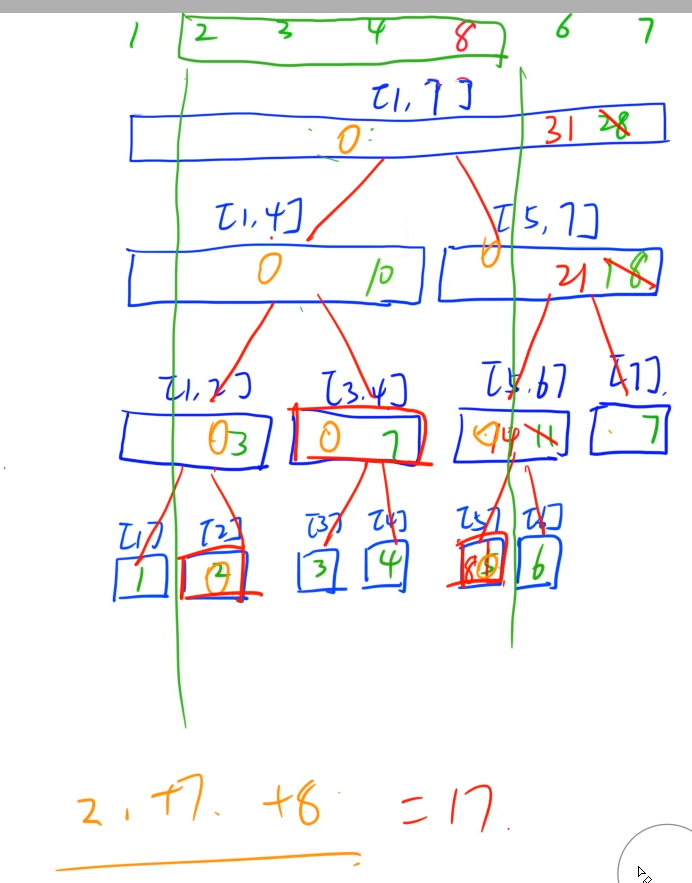 1 2 3 4 8 6 7
[1,7]
0 31 28
[1,4] [5,7]
0 10 0 21 18
[1,2] [3.4] [5.6] [7]
0 3 0 7 0 14 11 7
[1] [2] [3] [4] [5] [6]
1 2 0 3 4 8 5 0 6
2. +7. +8 = 17.